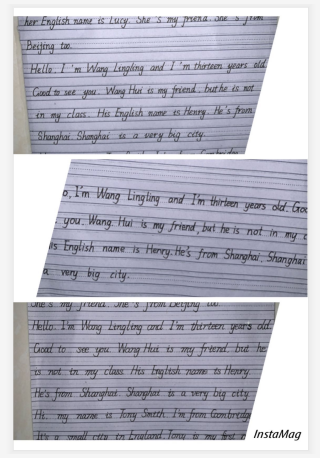 her English name is Lucy. She 's my friend. She 's from
Beijing too.
Hello. I 'm Wang Lingling and I 'm thirteen years old.
Good to see you. Wang Hui is my friend, but he is not
in my class. His English name is Henry. He's from
Shanghai. Shanghai is a very big city.
o, I'm Wang Lingling and I'm thirteen years old. Goo
you. Wang. Hui is my friend, but he is not in my c
is English name is Henry. He's from Shanghai, Shanghai
a very big city.
She 's my friend. She 's from Beijing too.
Hello. I'm Wang Lingling and I'm thirteen years old.
Good to see you. Wang Hui is my friend, but he
is not in my class His English name is Henry
He's from Shanghai. Shanghai is a very big city
Hi. my name is Tony Smith I'm from Cambridge
It's a small city in England. Tony is my first n
InstaMag